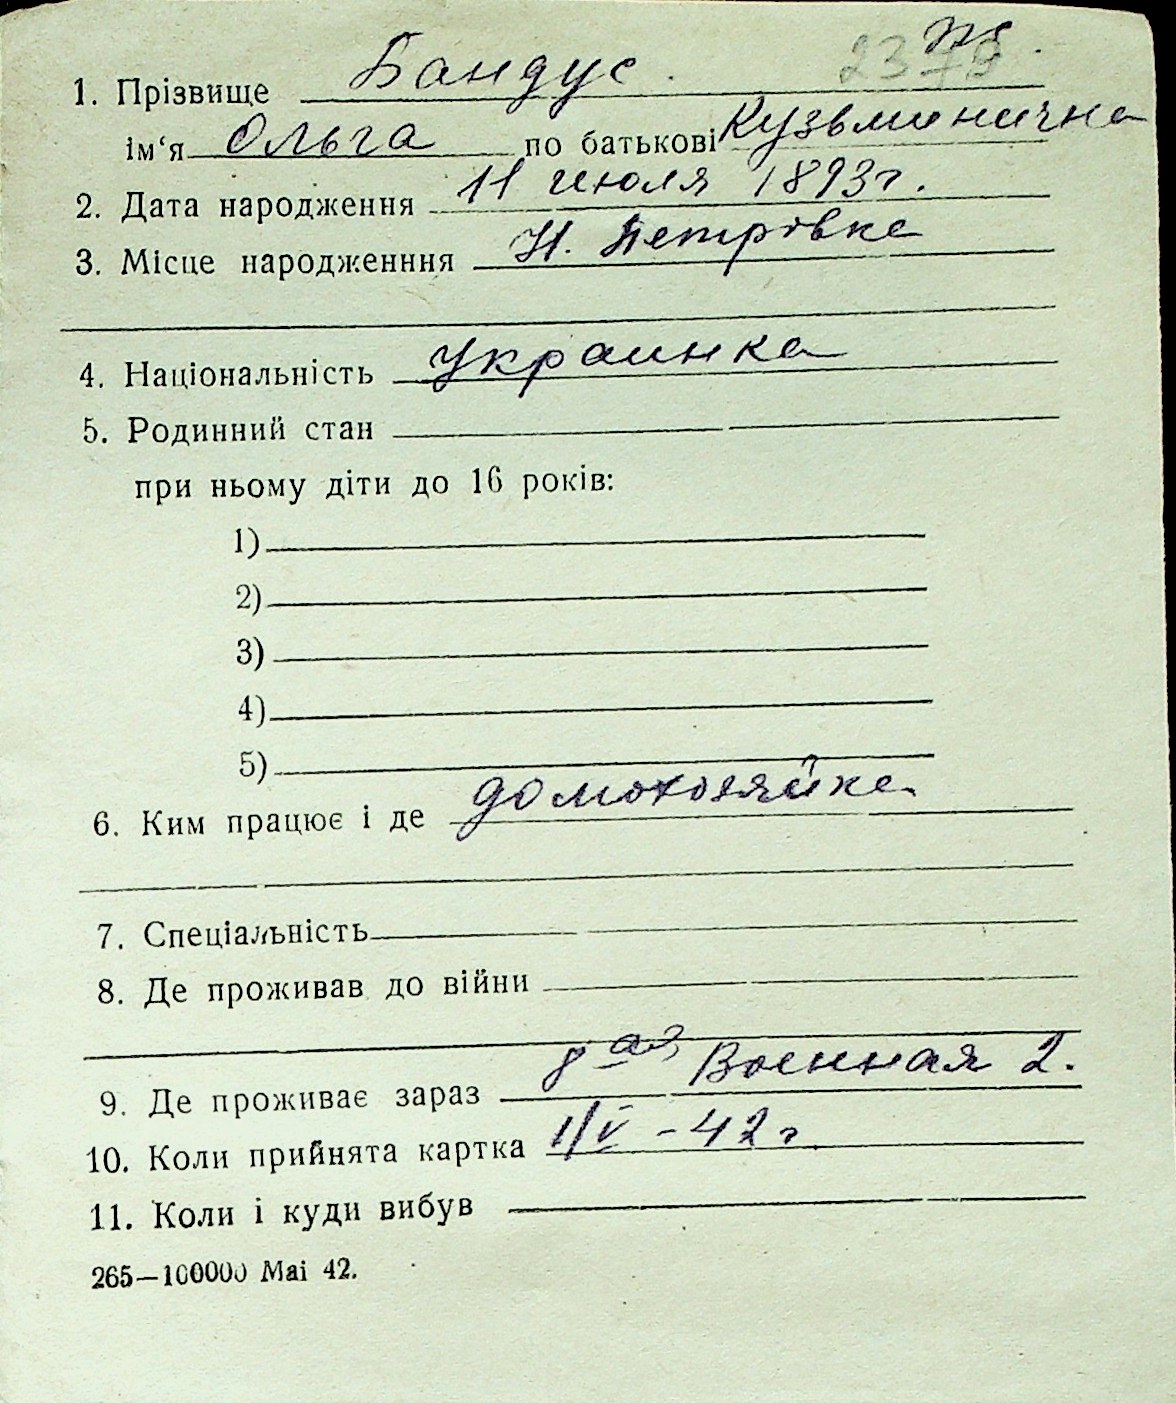 1. Прізвище Бандус. 2379 Ж.
ім‘я Ольга по батькові Кузьминична
2. Дата народження 11 июля 1893г.
3. Місце народженння Н. Петровка
4. Національність Украинка
5. Родинний стан
при ньому діти до 16 років:
1)
2)
3)
4)
5)
6. Ким працює і де домохозяйка
7. Спеціальність
8. Де проживав до війни
9. Де проживає зараз 8ая Военная 2.
10. Коли прийнята картка 1/V – 42 г
11. Коли і куди вибув
265—100000 Mai 42.